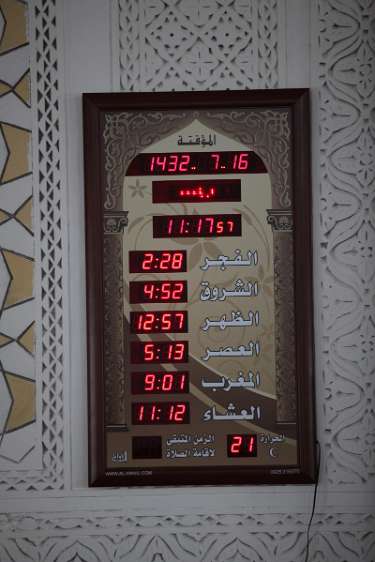 المؤقتة
1432 7 16
11:17 57
2:28 الفجر
4:52 الشروق
12:57 الظهر
5:13 العصر
9:01 المغرب
11:12 العشاء
الزمن المتبقي
لاقامة الصلاة
21 الحرارة